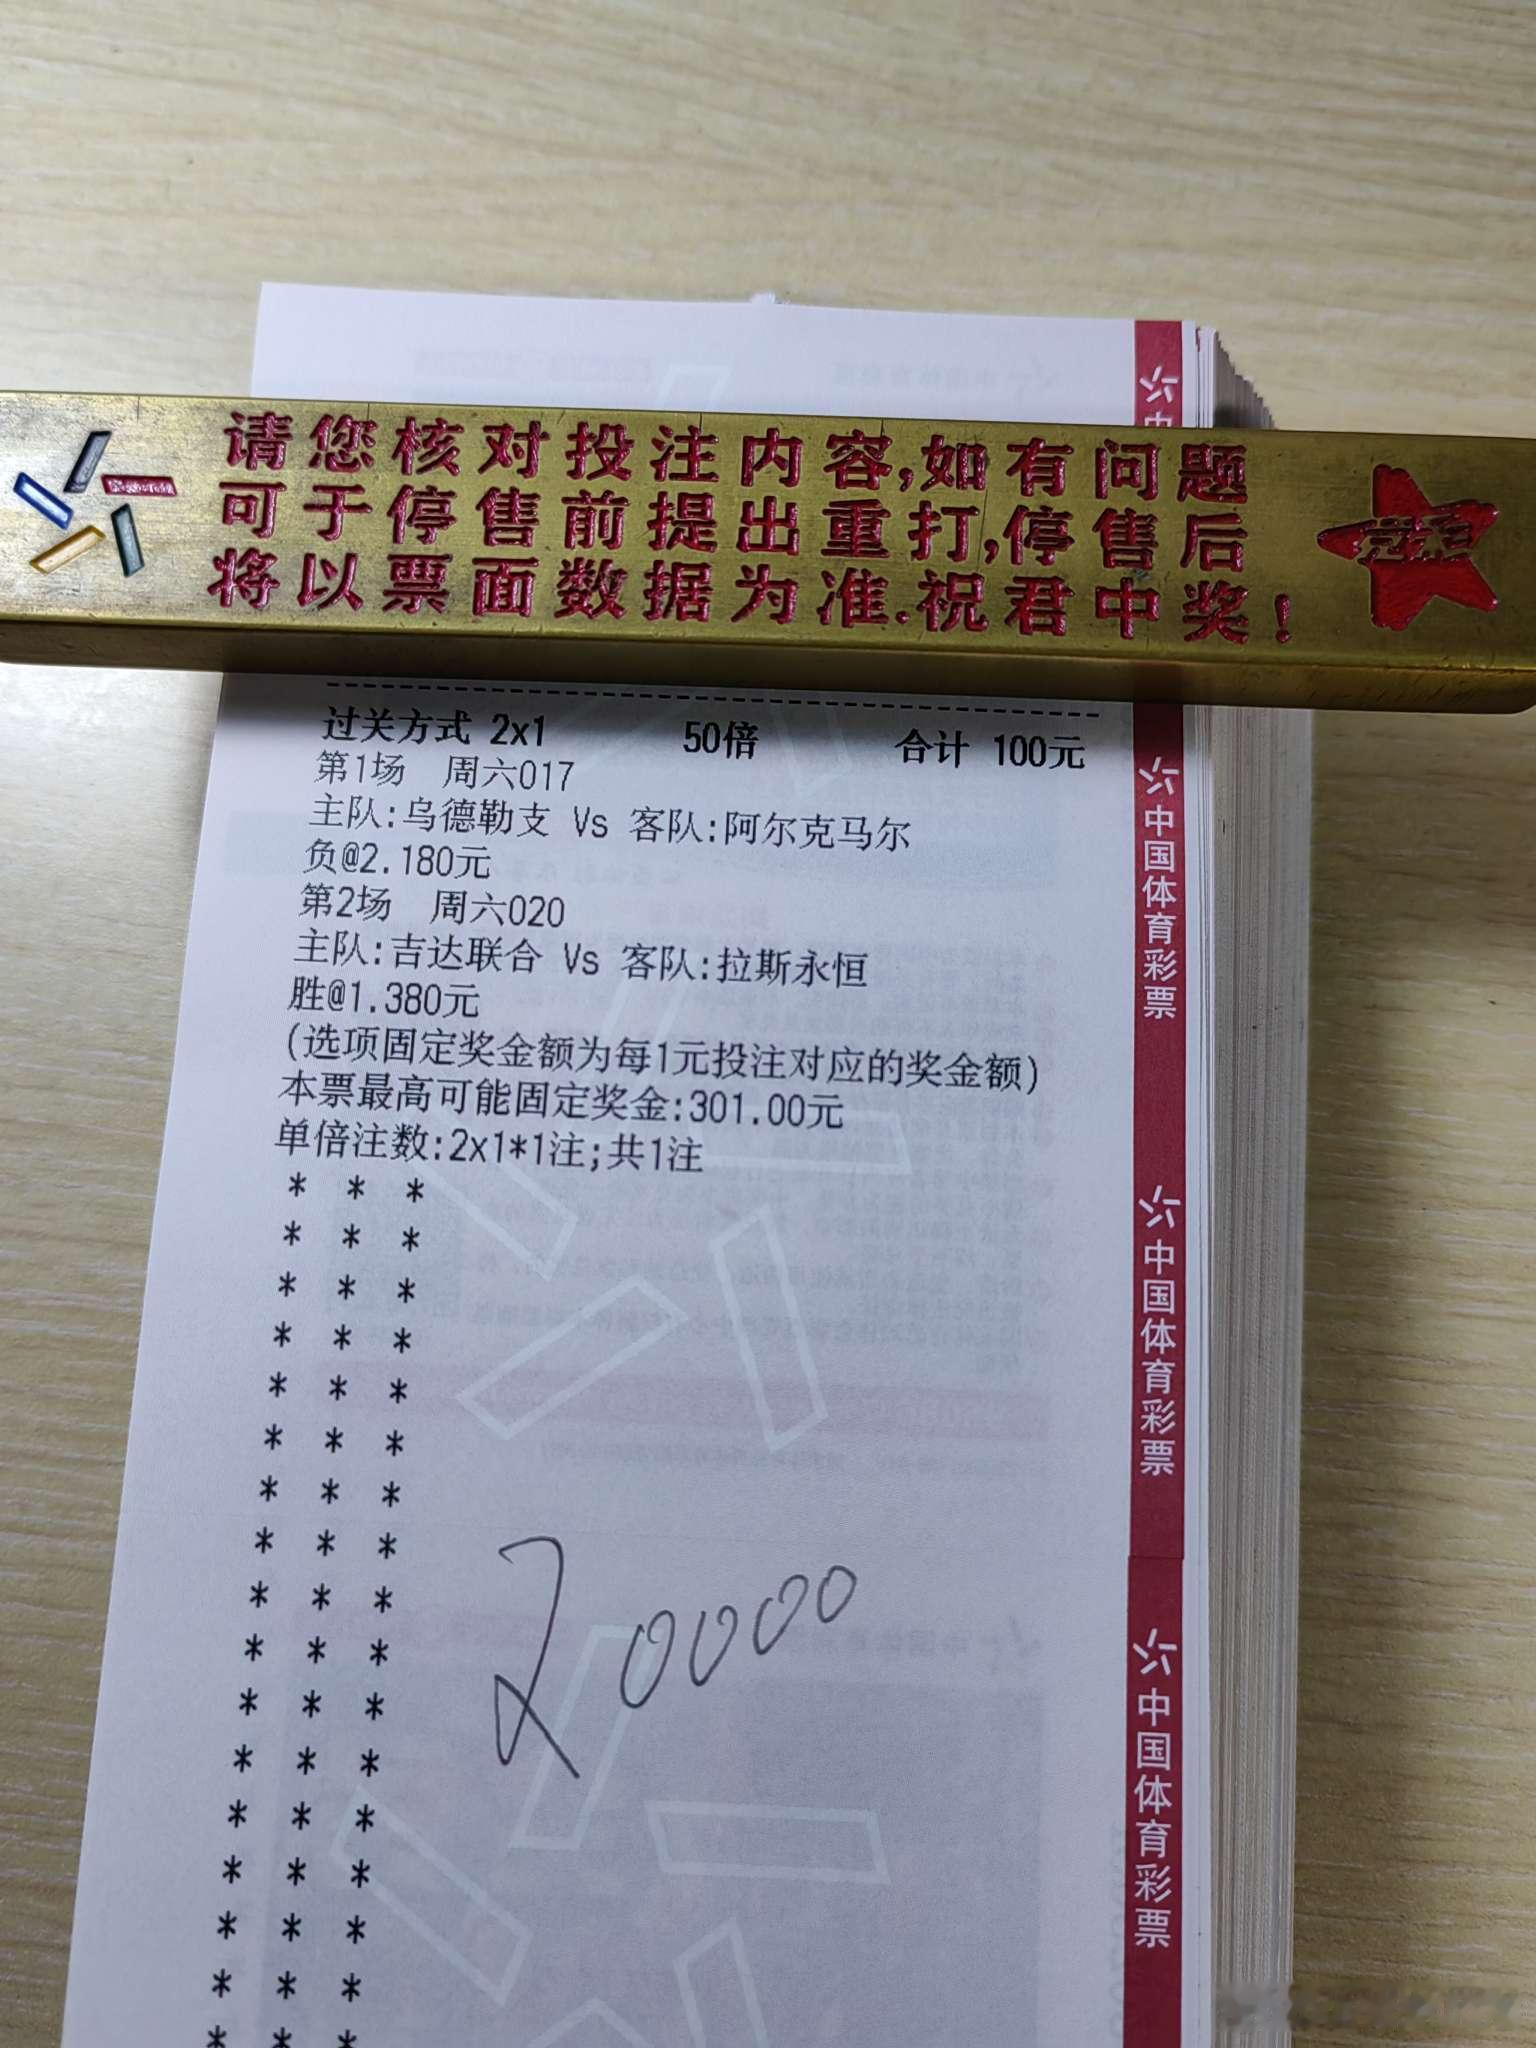 请您核对投注内容,如有问题
可于停售前提出重打,停售后
将以票面数据为准.祝君中奖!
过关方式 2x1 50倍 合计 100元
第1场 周六017
主队:乌德勒支 Vs 客队:阿尔克马尔
负@2.180元
第2场 周六020
主队:吉达联合 Vs 客队:拉斯永恒
胜@1.380元
(选项固定奖金额为每1元投注对应的奖金额)
本票最高可能固定奖金:301.00元
单倍注数:2x1*1注;共1注
* * *
* * *
* * *
* * *
* * *
* * *
* * *
* * *
* * *
* * *
* * *
* * *
* * *
* * *
* * *
* * *
* * *
20000
中国体育彩票
中国体育彩票
中国体育彩票